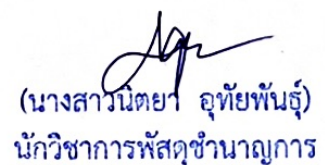 (นางสาวนิตยา อุทัยพันธุ์)
นักวิชาการพัสดุชำนาญการ